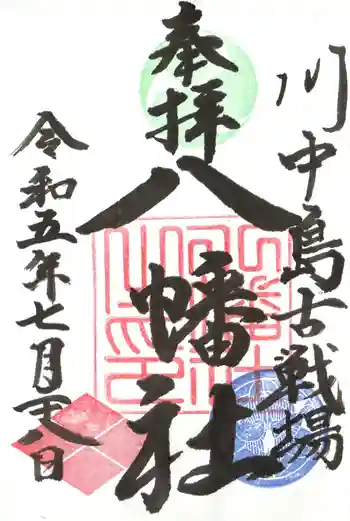 川中島古戦場
奉拝
八幡社
令和五年七月 日